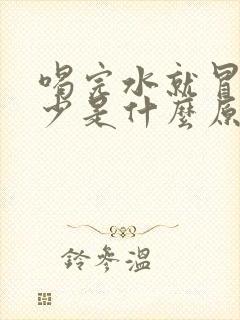 喝完水就冒
少是什麼原
鈴參溫